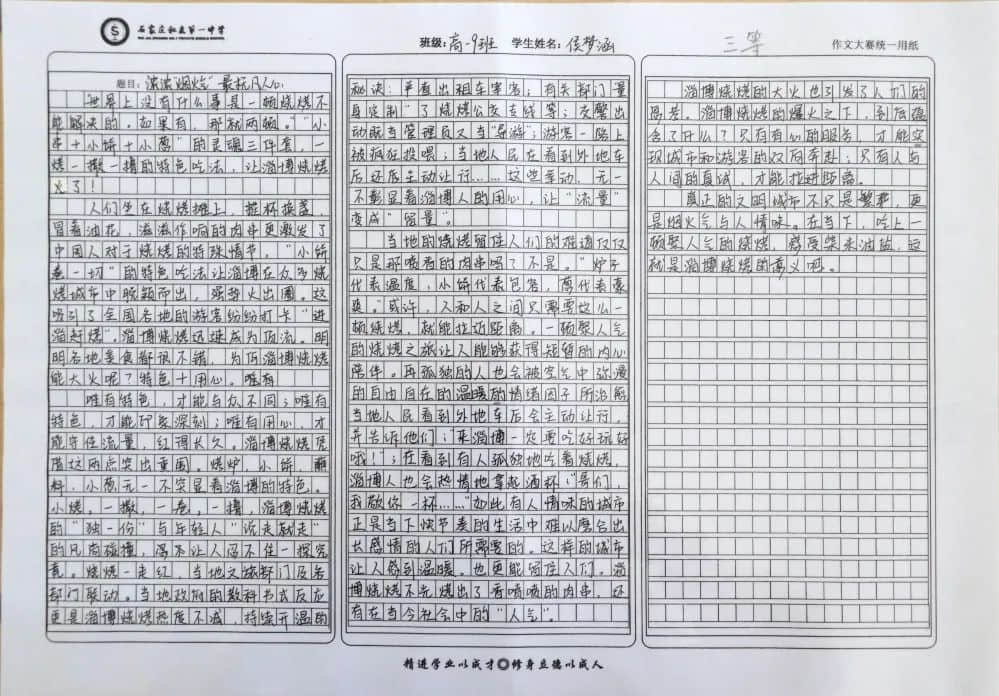 石家庄私立第一中学
班级：高一9班 学生姓名：侯梦涵
三等
作文大赛统一用纸
题目：浓浓"烟火气"最抚凡人心
世界上没有什么事是一顿烧烤不
能解决的。如果有，那就两顿。"小
串＋小饼＋小葱"的灵魂三件套，一
烤一撒一撸的特色吃法，让淄博烧烤
火了！
人们坐在烧烤摊上，推杯换盏，
冒着油花，滋滋作响的肉串更激发了
中国人对于烧烤的特殊情节。"小饼
卷一切"的特色吃法让淄博在众多烧
烤城市中脱颖而出，强势火出圈。这
吸引了全国各地的游客纷纷打卡"进
淄赶烤"。淄博烧烤迅速成为顶流。明
明各地美食都很不错，为何淄博烧烤
能大火呢？特色＋用心。唯有
唯有特色，才能与众不同；唯有
特色，才能印象深刻；唯有用心，才
能守住流量，红得长久。淄博烧烤凭
借这两点突出重围。烤炉，小饼，蘸
料，小葱无一不突显着淄博的特色。
小烤。一撒，一卷，一撸，淄博烧烤
的"独一份"与年轻人"说走就走"
的风尚碰撞，焉不让人忍不住一探究
竟。烧烤一走红，当地文旅部门及各
部门联动。当地政府的教科书式反应
更是淄博烧烤热度不减，持续升温的
秘诀：严查出租车宰客；有关部门量
身定制"了烧烤公交专线等；交警出
动既当管理员又当"导游"；游客一路上
被疯狂投喂；当地人民在看到外地车
后还后主动让行……这些举动，无一
不彰显着淄博人的用心，让"流量"
变成"留量"。
当地的烧烤留住人们的难道仅仅
只是那喷香的肉串吗？不是。"炉子
代表温度，小饼代表包容，葱代表豪
爽。"或许，人和人之间只需要这么一
顿烧烤，就能拉近距离。一顿聚人气
的烧烤之旅让人能够获得短暂的内心
陪伴。再孤独的人也会被空气中弥漫
的自由自在的温暖的情绪因子所治愈
当地人民看到外地车后会主动让行，
并告诉他们："来淄博一定要吃好玩好
哦！"；在看到有人孤独地吃着烧烤，
淄博人也会热情地拿起酒杯："哥们，
我敬你一杯……"如此有人情味的城市
正是当下快节奏的生活中难以磨合出
长感情的人们所需要的。这样的城市
让人感到温暖。也更能留住人们。淄
博烧烤不光烤出了香喷喷的肉串，还
有在当今社会中的"人气"。
淄博烧烤的大火也引发了人们的
思考。淄博烧烤的爆火之下，到底蕴
含了什么？只有有心的服务，才能实
现城市和游客的双向奔赴；只有人与
人间的真诚，才能拉进距离。
真正的文明城市不只是繁华，更
是烟火气与人情味。在当下，吃上一
顿聚人气的烧烤，感受柴米油盐，这
就是淄博烧烤的意义吧。
精进学业以成才 修身立德以成人